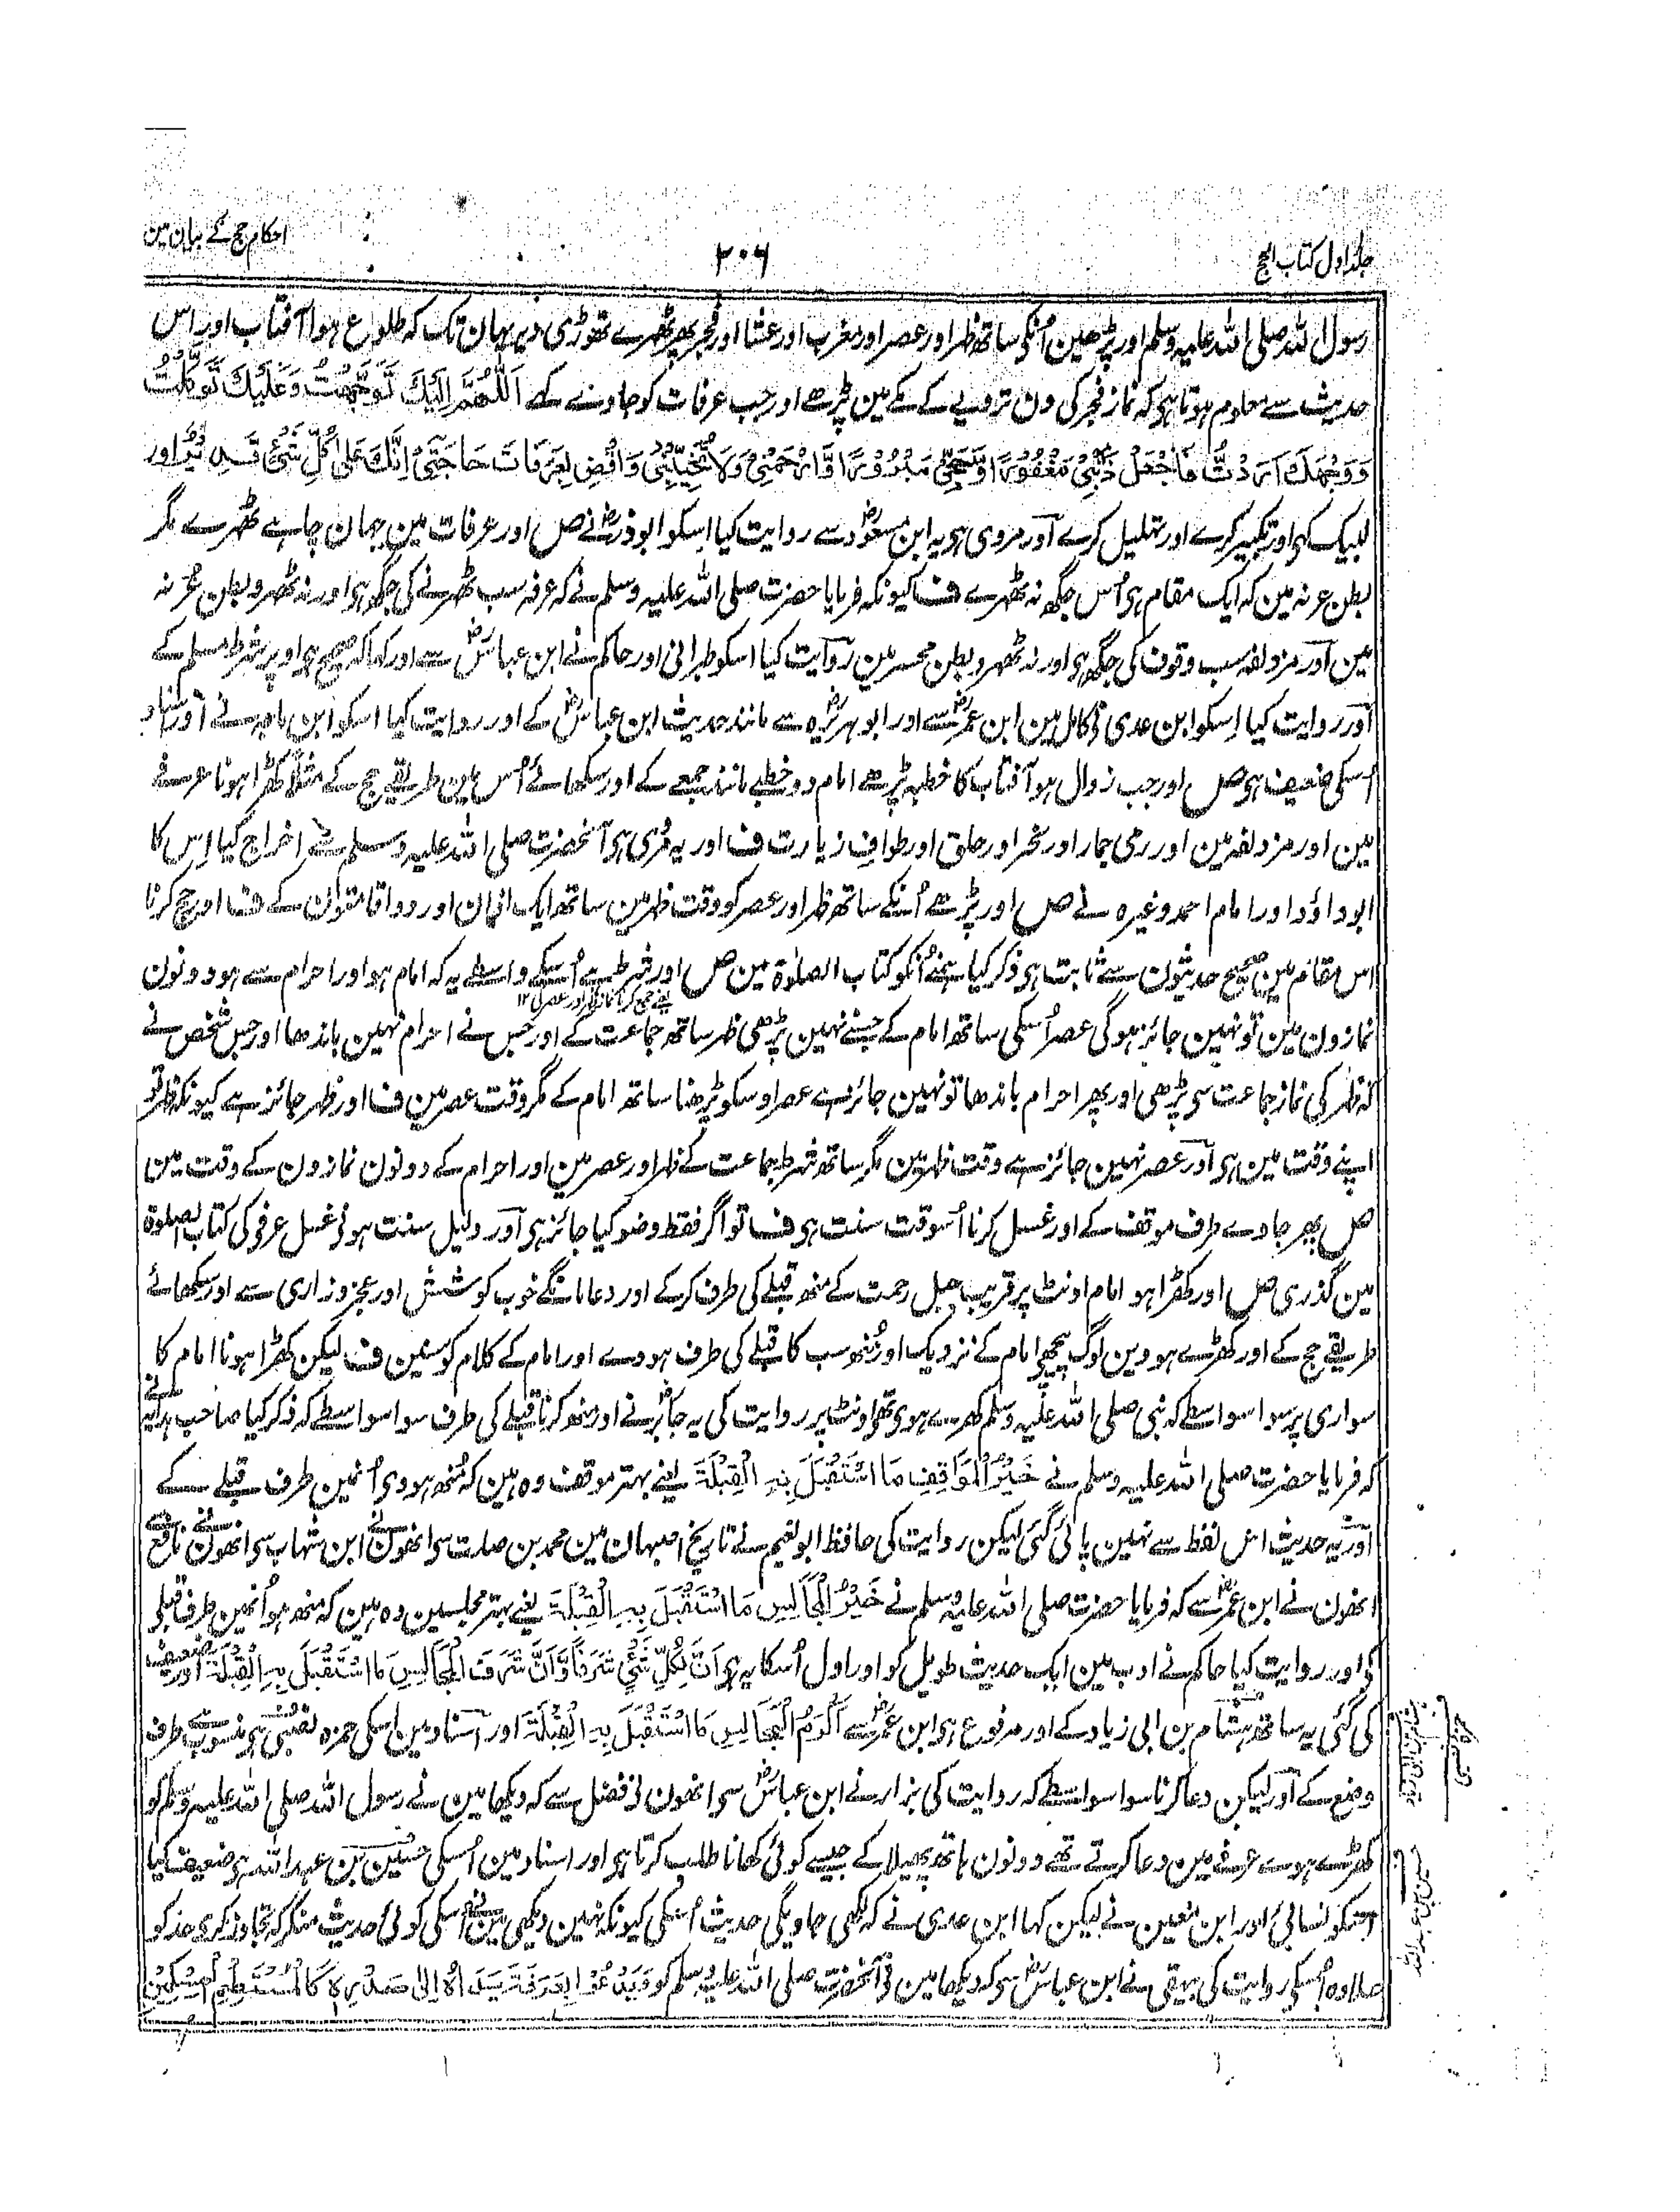 جلد اول کتاب الحج
۲۰۶
احکام حج کے بیان مین
رسول اللہ صلی اللہ علیہ وسلم اور پڑھین اُنکی ساتھ ظہر اور عصر اور مغرب اور عشا اور فجر پھر ٹھہرے تھوڑی دیر یہان تک کہ طلوع ہوا آفتاب اور اس
حدیث سے معلوم ہوتا ہی کہ نماز فجر کی دن ترویے کے مکے مین پڑھے اور جب عرفات کو جاونے کہے اَللّٰهُمَّ اِلَيْكَ تَوَجَّهْتُ وَعَلَيْكَ تَوَكَّلْتُ
وَوَجْهَكَ اَرَدْتُّ فَاجْعَلْ ذَنْبِيْ مَغْفُوْرًا وَّحَجِّيْ مَبْرُوْرًا وَّارْحَمْنِيْ وَلَا تُخَيِّبْنِيْ وَاقْضِ بِعَرَفَاتَ حَاجَتِيْ اِنَّكَ عَلٰى كُلِّ شَيْءٍ قَدِيْرٌ اور
لبیک کہی اور تکبیر کرے اور تہلیل کرے اور مروی ہی یہ ابن مسعودؓ سے روایت کیا اسکو ابوذرؓ نے ص اور عرفات مین جہان چاہے ٹھہرے مگر
بطن عرنہ مین کہ ایک مقام ہی اُس جگہ نہ ٹھہرے ف کیونکہ فرمایا حضرت صلی اللہ علیہ وسلم نے کہ عرفہ سب ٹھہرنے کی جگہ ہی اور نہ ٹھہرو بطن عرنہ
مین اور مزدلفہ سب وقوف کی جگہ ہی اور نہ ٹھہرو بطن محسر مین روایت کیا اسکو طبرانی اور حاکم نے ابن عباسؓ سے اور کہا کہ صحیح ہی اوپر شرط مسلم کے
اور روایت کیا اِسکو ابن عدی نی کامل مین ابن عمرؓ سے اور ابوہریرہؓ سے مانند حدیث ابن عباسؓ کے اور روایت کیا اسکو ابن ماجہ نے اور اسناد
اُسکی ضعیف ہی ص اور جب زوال ہو آفتاب کا خطبہ پڑھے امام دو خطبے مانند جمعے کے اور سکھائے اُس مین طریقے حج کے مثلاً کھڑا ہونا عرفے
مین اور مزدلفہ مین اور رمی جمار اور نحر اور حلق اور طواف زیارت ف اور یہ مروی ہی آنحضرت صلی اللہ علیہ وسلم سے اخراج کیا اِس کا
ابو داؤد اور امام احمد وغیرہ نے ص اور پڑھے اُنکے ساتھ ظہر اور عصر کو وقت ظہر مین ساتھ ایک اذان اور دو اقامتون کے ف اور جمع کرنا
اس مقام مین صحیح حدیثون سے ثابت ہی ذکر کیا ہمنے اُنکو کتاب الصلوٰۃ مین ص اور شرط ہے اُسکے واسطے یہ کہ امام ہو اور احرام سے ہو دونون
یعنے جمع کرنا نماز ظہر اور عصر کی ۱۲
نمازون مین تو نہین جائز ہوگی عصر اُسکی ساتھ امام کے جسنے نہین پڑھی ظہر ساتھ جماعت کے اور جس نے احرام نہین باندھا اور جس شخص نے
کہ ظہر کی نماز جماعت سی پڑھی اور پھر احرام باندھا تو نہین جائز ہے عصر اوسکو پڑھنا ساتھ امام کے مگر وقت عصر مین ف اور ظہر جائز ہے کیونکہ ظہر تو
اپنے وقت مین ہی اور عصر نہین جائز ہے وقت ظہر مین مگر ساتھ شرط جماعت کے ظہر اور عصر مین اور احرام کے دونون نمازون کے وقت مین
ص پھر جاوے طرف موقف کے اور غسل کرنا اُسوقت سنت ہی ف تو اگر فقط وضو کیا جائز ہی اور دلیل سنت ہونی غسل عرفی کی کتاب الصلوٰۃ
مین گذری ص اور کھڑا ہو امام اونٹ پر قریب جبل رحمت کے منھ قبلے کی طرف کرکے اور دعا مانگے خوب کوشش اور عجز و زاری سے اور سکھائے
طریقے حج کے اور کھڑے ہووین لوگ پیچھی امام کے نزدیک اور مُنھ سب کا قبلے کی طرف ہووے اور امام کے کلام کو سنین ف لیکن کھڑا ہونا امام کا
سواری پر سو اسواسطے کہ نبی صلی اللہ علیہ وسلم کھڑے ہوی تھی اونٹ پر روایت کی یہ جابرؓ نے اور منھ کرنا قبلے کی طرف سو اسواسطے کہ ذکر کیا صاحب ہدایہ نے
کہ فرمایا حضرت صلی اللہ علیہ وسلم نے خَيْرُ الْمَوَاقِفِ مَا اسْتُقْبِلَ بِهِ الْقِبْلَةَ یعنے بہتر موقف وہ ہین کہ مُنھ ہووی اُنمین طرف قبلے کے
اور یہ حدیث اس لفظ سے نہین پائی گئی لیکن روایت کی حافظ ابو نعیم نے تاریخ اصبہان مین محمد بن صلت سی انھون نے ابن شہاب سی انھون نے نافع سے
انھون نے ابن عمرؓ سے کہ فرمایا حضرت صلی اللہ علیہ وسلم نے خَيْرُ الْمَجَالِسِ مَا اسْتُقْبِلَ بِهِ الْقِبْلَةَ یعنے بہتر مجلسین وہ ہین کہ منھ ہو اُنمین طرف قبلی
کی اور روایت کیا حاکم نے ادب مین ایک حدیث طویل کو اور اول اُسکا یہ ہی اَنَّ لِكُلِّ شَيْءٍ شَرَفًا وَّاَنَّ شَرَفَ الْمَجَالِسِ مَا اسْتُقْبِلَ بِهِ الْقِبْلَةَ اور ضعیف
کی گئی یہ ساتھ ہشام بن ابی زیاد کے اور مرفوع ہی ابن عمرؓ سے اَكْرَمُ الْمَجَالِسِ مَا اسْتُقْبِلَ بِهِ الْقِبْلَةَ اور اسناد مین اسکی حمزہ نصیبی ہی منسوب ہے طرف
وضع کے اور لیکن دعا کرنا سو اسواسطے کہ روایت کی بزار نے ابن عباسؓ سی انھون نی فضل سے کہ دیکھا مین نے رسول اللہ صلی اللہ علیہ وسلم کو
کھڑے ہوے عرفے مین دعا کرتے تھے دونون ہاتھ پھیلا کے جیسے کوئی کھانا طلب کرتا ہی اور اسناد مین اُسکی حسین بن عبداللہ ہی ضعیف کیا
اسکو نسائی اور ابن معین نے لیکن کہا ابن عدی نے کہ لکھی جاویگی حدیث اُسکی کیونکہ نہین دیکھی مین نے اُسکی کوئی حدیث منکر کہ تجاوز کری حد کو
علاوہ اُسکی روایت کی بیہقی نے ابن عباسؓ سی کہ دیکھا مین نی آنحضرت صلی اللہ علیہ وسلم کو يَدْعُوْا بِعَرَفَةَ يَدَاهُ اِلٰى صَدْرِهٖ كَالْمُسْتَطْعِمِ الْمِسْكِيْنِ
حسین بن عبداللہ